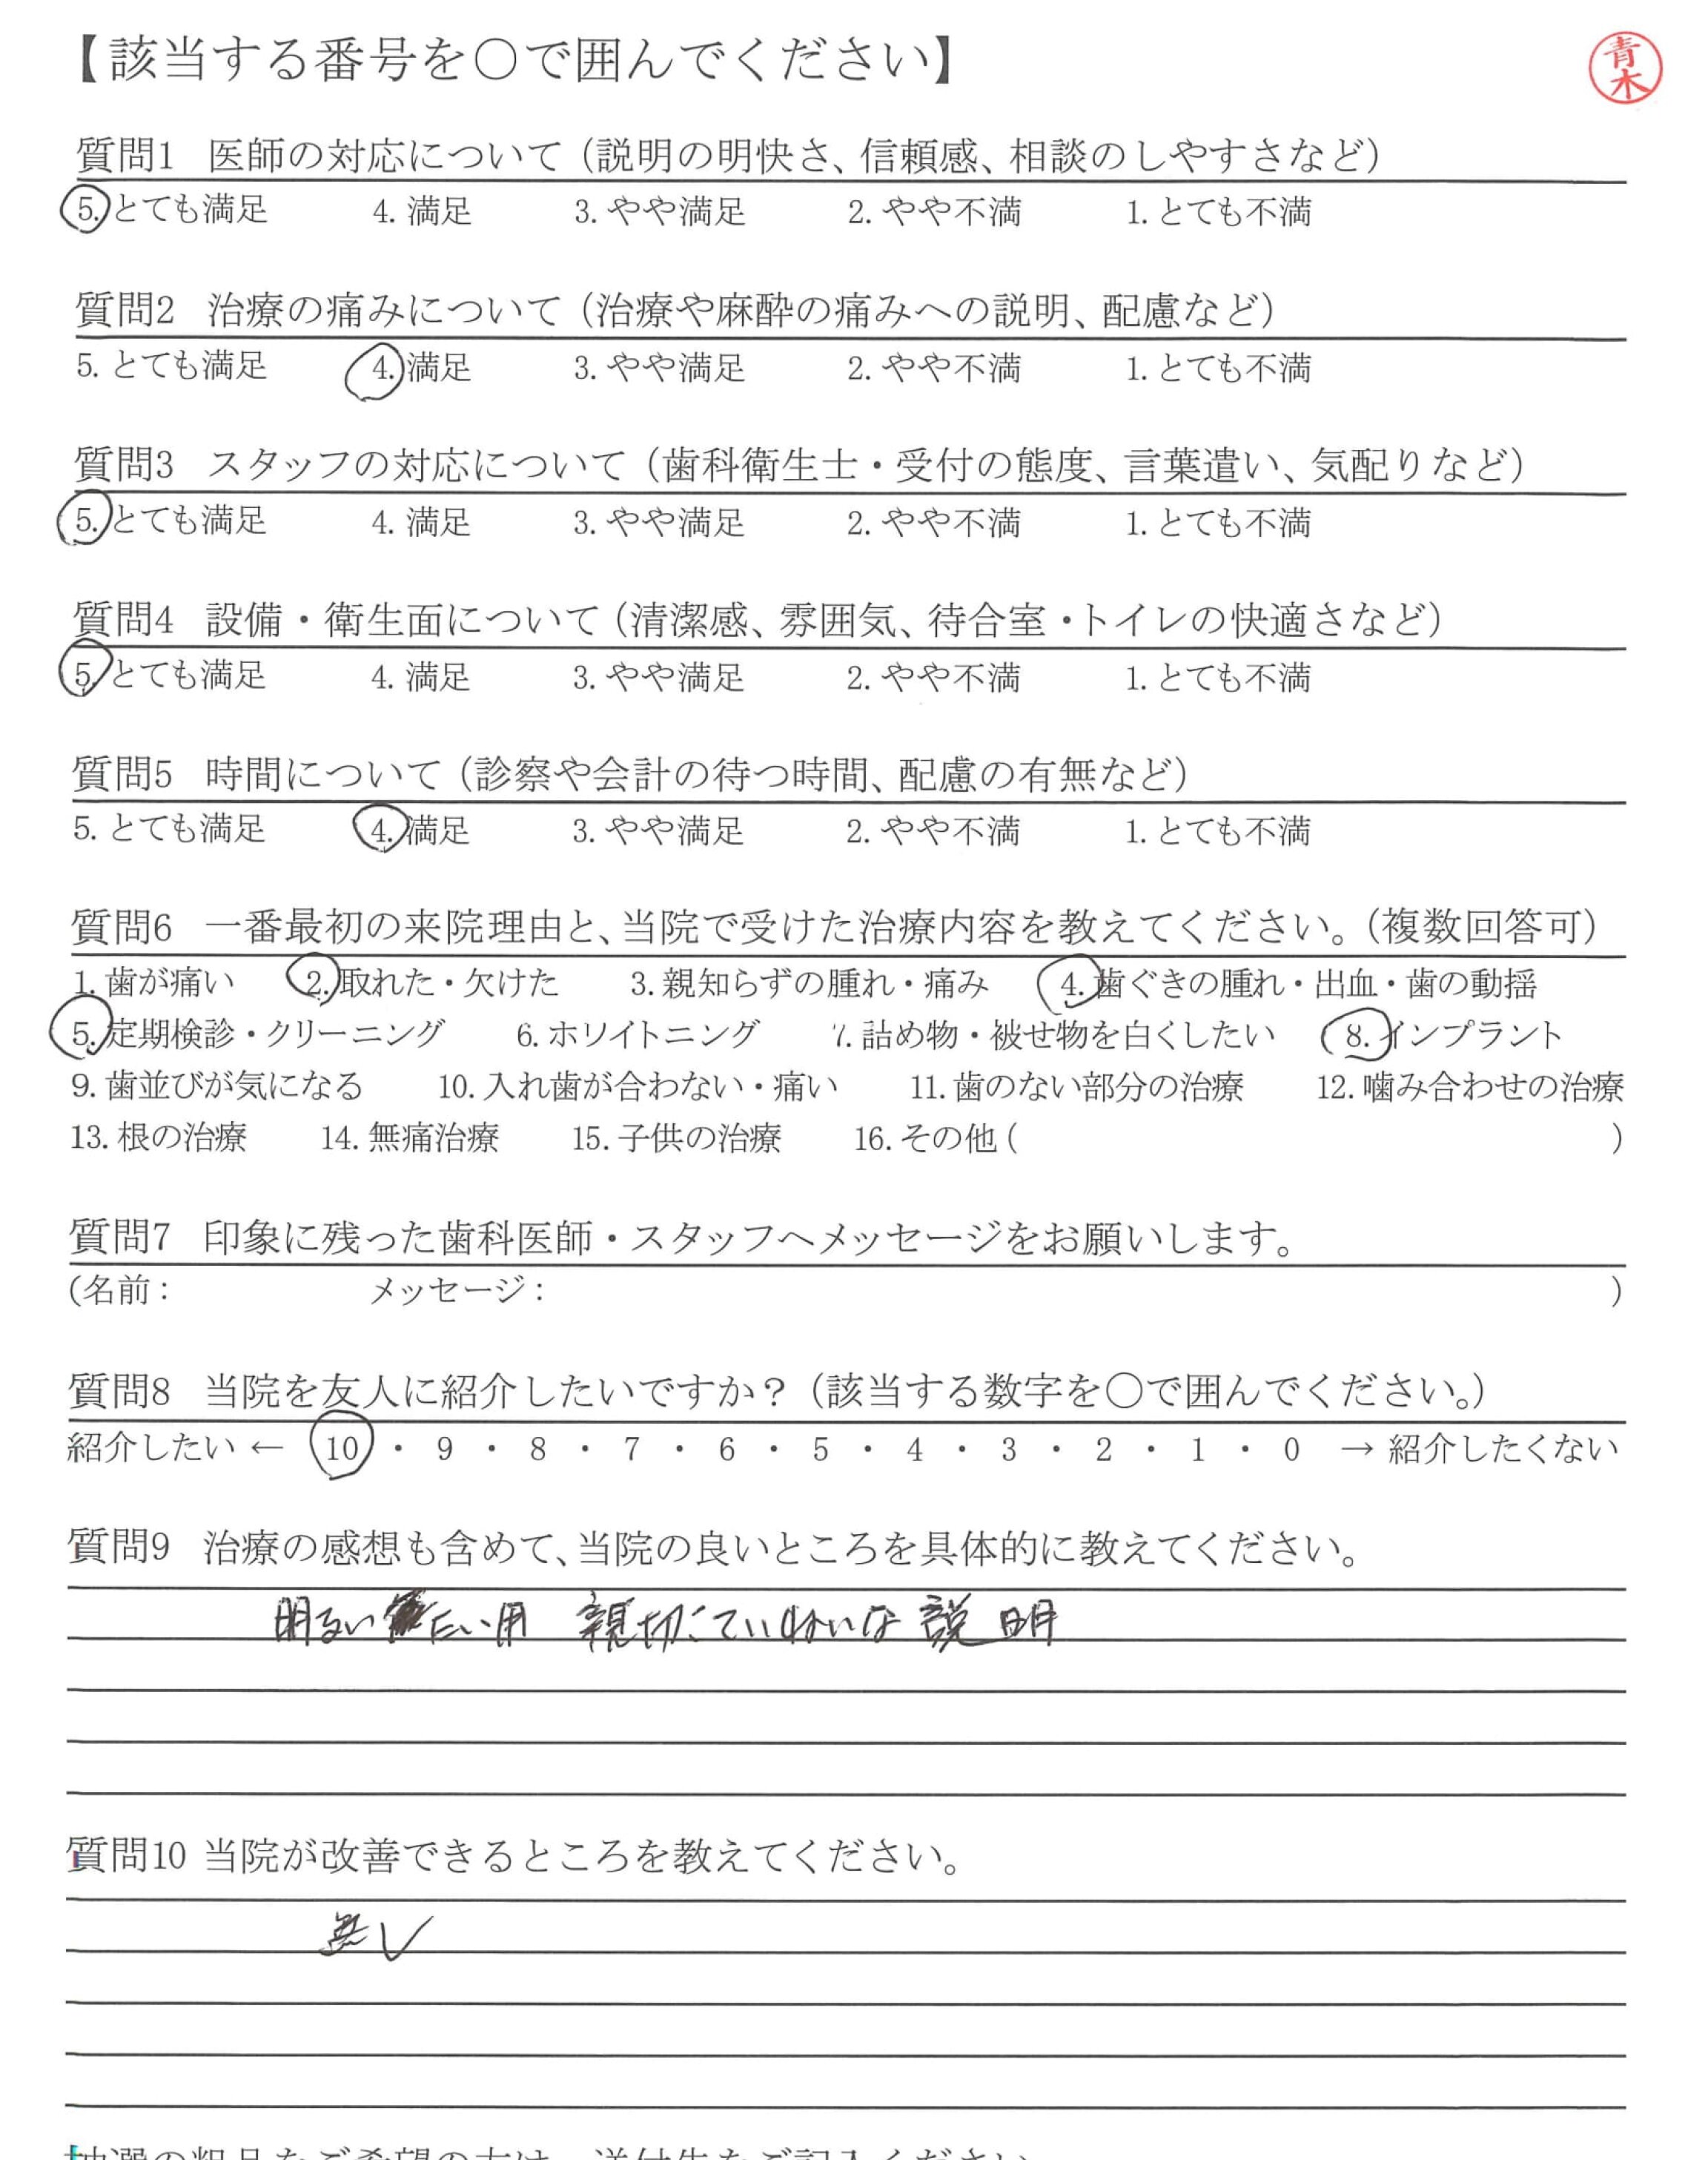 【該当する番号を○で囲んでください】
青木
質問1 医師の対応について（説明の明快さ、信頼感、相談のしやすさなど）
5. とても満足 4. 満足 3. やや満足 2. やや不満 1. とても不満
質問2 治療の痛みについて（治療や麻酔の痛みへの説明、配慮など）
5. とても満足 4. 満足 3. やや満足 2. やや不満 1. とても不満
質問3 スタッフの対応について（歯科衛生士・受付の態度、言葉遣い、気配りなど）
5. とても満足 4. 満足 3. やや満足 2. やや不満 1. とても不満
質問4 設備・衛生面について（清潔感、雰囲気、待合室・トイレの快適さなど）
5. とても満足 4. 満足 3. やや満足 2. やや不満 1. とても不満
質問5 時間について（診察や会計の待つ時間、配慮の有無など）
5. とても満足 4. 満足 3. やや満足 2. やや不満 1. とても不満
質問6 一番最初の来院理由と、当院で受けた治療内容を教えてください。（複数回答可）
1. 歯が痛い 2. 取れた・欠けた 3. 親知らずの腫れ・痛み 4. 歯ぐきの腫れ・出血・歯の動揺
5. 定期検診・クリーニング 6. ホワイトニング 7. 詰め物・被せ物を白くしたい 8. インプラント
9. 歯並びが気になる 10. 入れ歯が合わない・痛い 11. 歯のない部分の治療 12. 噛み合わせの治療
13. 根の治療 14. 無痛治療 15. 子供の治療 16. その他 ( )
質問7 印象に残った歯科医師・スタッフへメッセージをお願いします。
(名前： メッセージ： )
質問8 当院を友人に紹介したいですか？（該当する数字を○で囲んでください。）
紹介したい ← 10 ・ 9 ・ 8 ・ 7 ・ 6 ・ 5 ・ 4 ・ 3 ・ 2 ・ 1 ・ 0 → 紹介したくない
質問9 治療の感想も含めて、当院の良いところを具体的に教えてください。
明るい たい用 親切こていねいな 説明
質問10 当院が改善できるところを教えてください。
無し
抽選の粗品をご希望の方は、送付先をご記入ください。